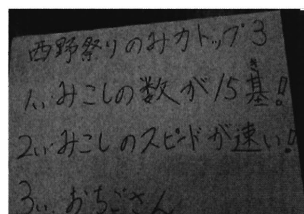 西野祭りのみカトップ3
1、みこしの数が15基!
2、みこしのスピードが速い!
3、おちごさん